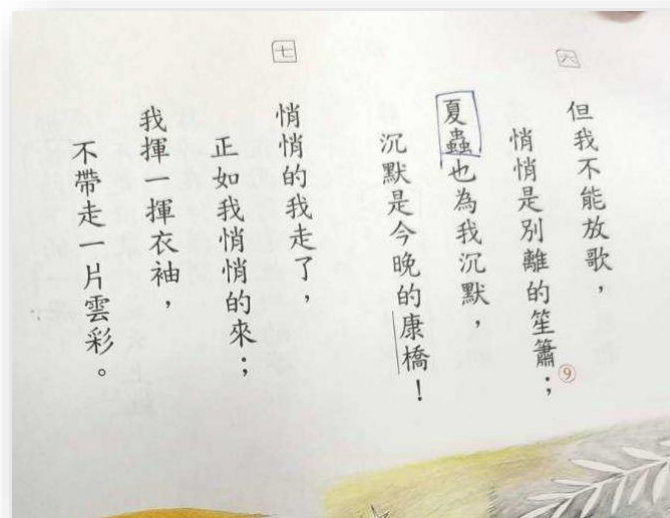 六
但我不能放歌，
悄悄是別離的笙簫；⑨
夏蟲也為我沉默，
沉默是今晚的康橋！
七
悄悄的我走了，
正如我悄悄的來；
我揮一揮衣袖，
不帶走一片雲彩。